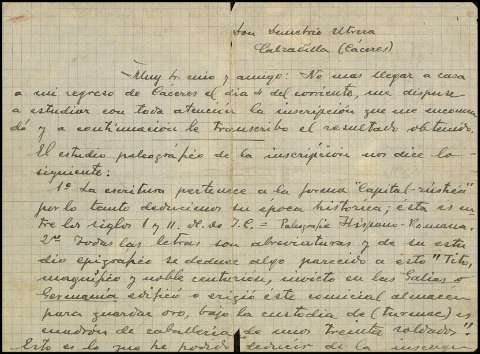 Don Demetrio Utrera
Calzadilla (Cáceres)
Muy Sr. mio y amigo: No mas llegar a casa
a mi regreso de Cáceres el dia 4 del corriente, me dispuse
a estudiar con toda atención la inscripción que me encomen
dó y a continuación le transcribo el resultado obtenido.
El estudio paleográfico de la inscripción nos dice lo
siguiente:
1º La escritura pertenece a la forma "Capital-rústica"
por lo tanto deducimos su época historica; esta es en-
tre los siglos I y II. d. de J.C. = Paleografía Hispano-Romana.
2º Todas las letras son abreviaturas y de su estu
dio epigrafico se deduce algo parecido a esto "Tito,
magnífico y noble centurión, invicto en las Galias o
Germania edificó o erigió este comicial almacen
para guardar oro, bajo la custodia de (turense) es
cuadron de caballeria de unos treinta soldados"
Esto es lo que he podido deducir de la inscrip